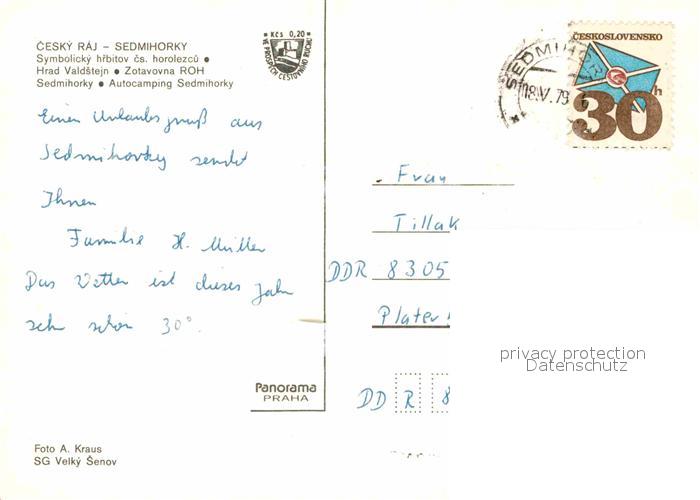 ČESKÝ RÁJ – SEDMIHORKY
Symbolický hřbitov čs. horolezců •
Hrad Valdštejn • Zotavovna ROH
Sedmihorky • Autocamping Sedmihorky
Kčs 0,20
VE PROSPĚCH CESTOVNÍHO RUCHU
ČESKOSLOVENSKO
30h
SEDMIHOR
18.V.79
Einen Urlaubsgruß aus
Sedmihorky sendet
Ihnen
Familie H. Müller
Das Wetter ist dieses Jahr
sehr schön 30°.
Frau
Tillak
DDR 8305
DD R 8
Panorama
PRAHA
privacy protection
Datenschutz
Foto A. Kraus
SG Velký Šenov